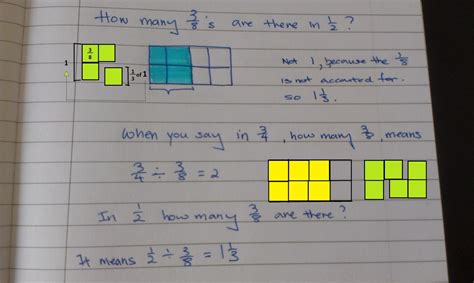 How many 3/8's are there in 1/2 ?
1
3/8
1/3 of 1
Not 1, because the 1/8
is not accounted for.
so 1 1/3.
When you say in 3/4, how many 3/8, means
3/4 ÷ 3/8 = 2
In 1/2 how many 3/8 are there?
It means 1/2 ÷ 3/8 = 1 1/3